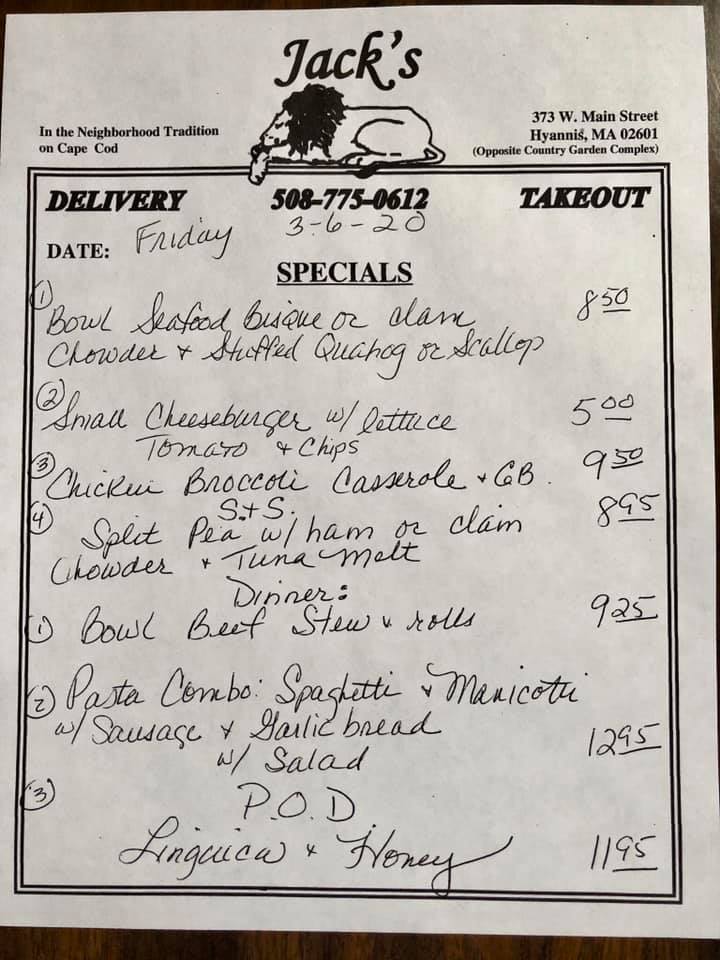 Jack's
In the Neighborhood Tradition
on Cape Cod
373 W. Main Street
Hyannis, MA 02601
(Opposite Country Garden Complex)
DELIVERY 508-775-0612 TAKEOUT
DATE: Friday 3-6-20
SPECIALS
① Bowl Seafood bisque or clam 8 50
Chowder + Stuffed Quahog or Scallop
② Small Cheeseburger w/ lettuce 5 00
Tomato + Chips
③ Chicken Broccoli Casserole + GB. 9 50
S+S.
④ Split Pea w/ ham or clam 8 95
Chowder + Tuna melt
Dinner:
① Bowl Beef Stew + rolls 9 25
② Pasta Combo: Spaghetti + Manicotti
w/ Sausage + Garlic bread
w/ Salad 12 95
③ P.O.D.
Linguica + Honey 11 95